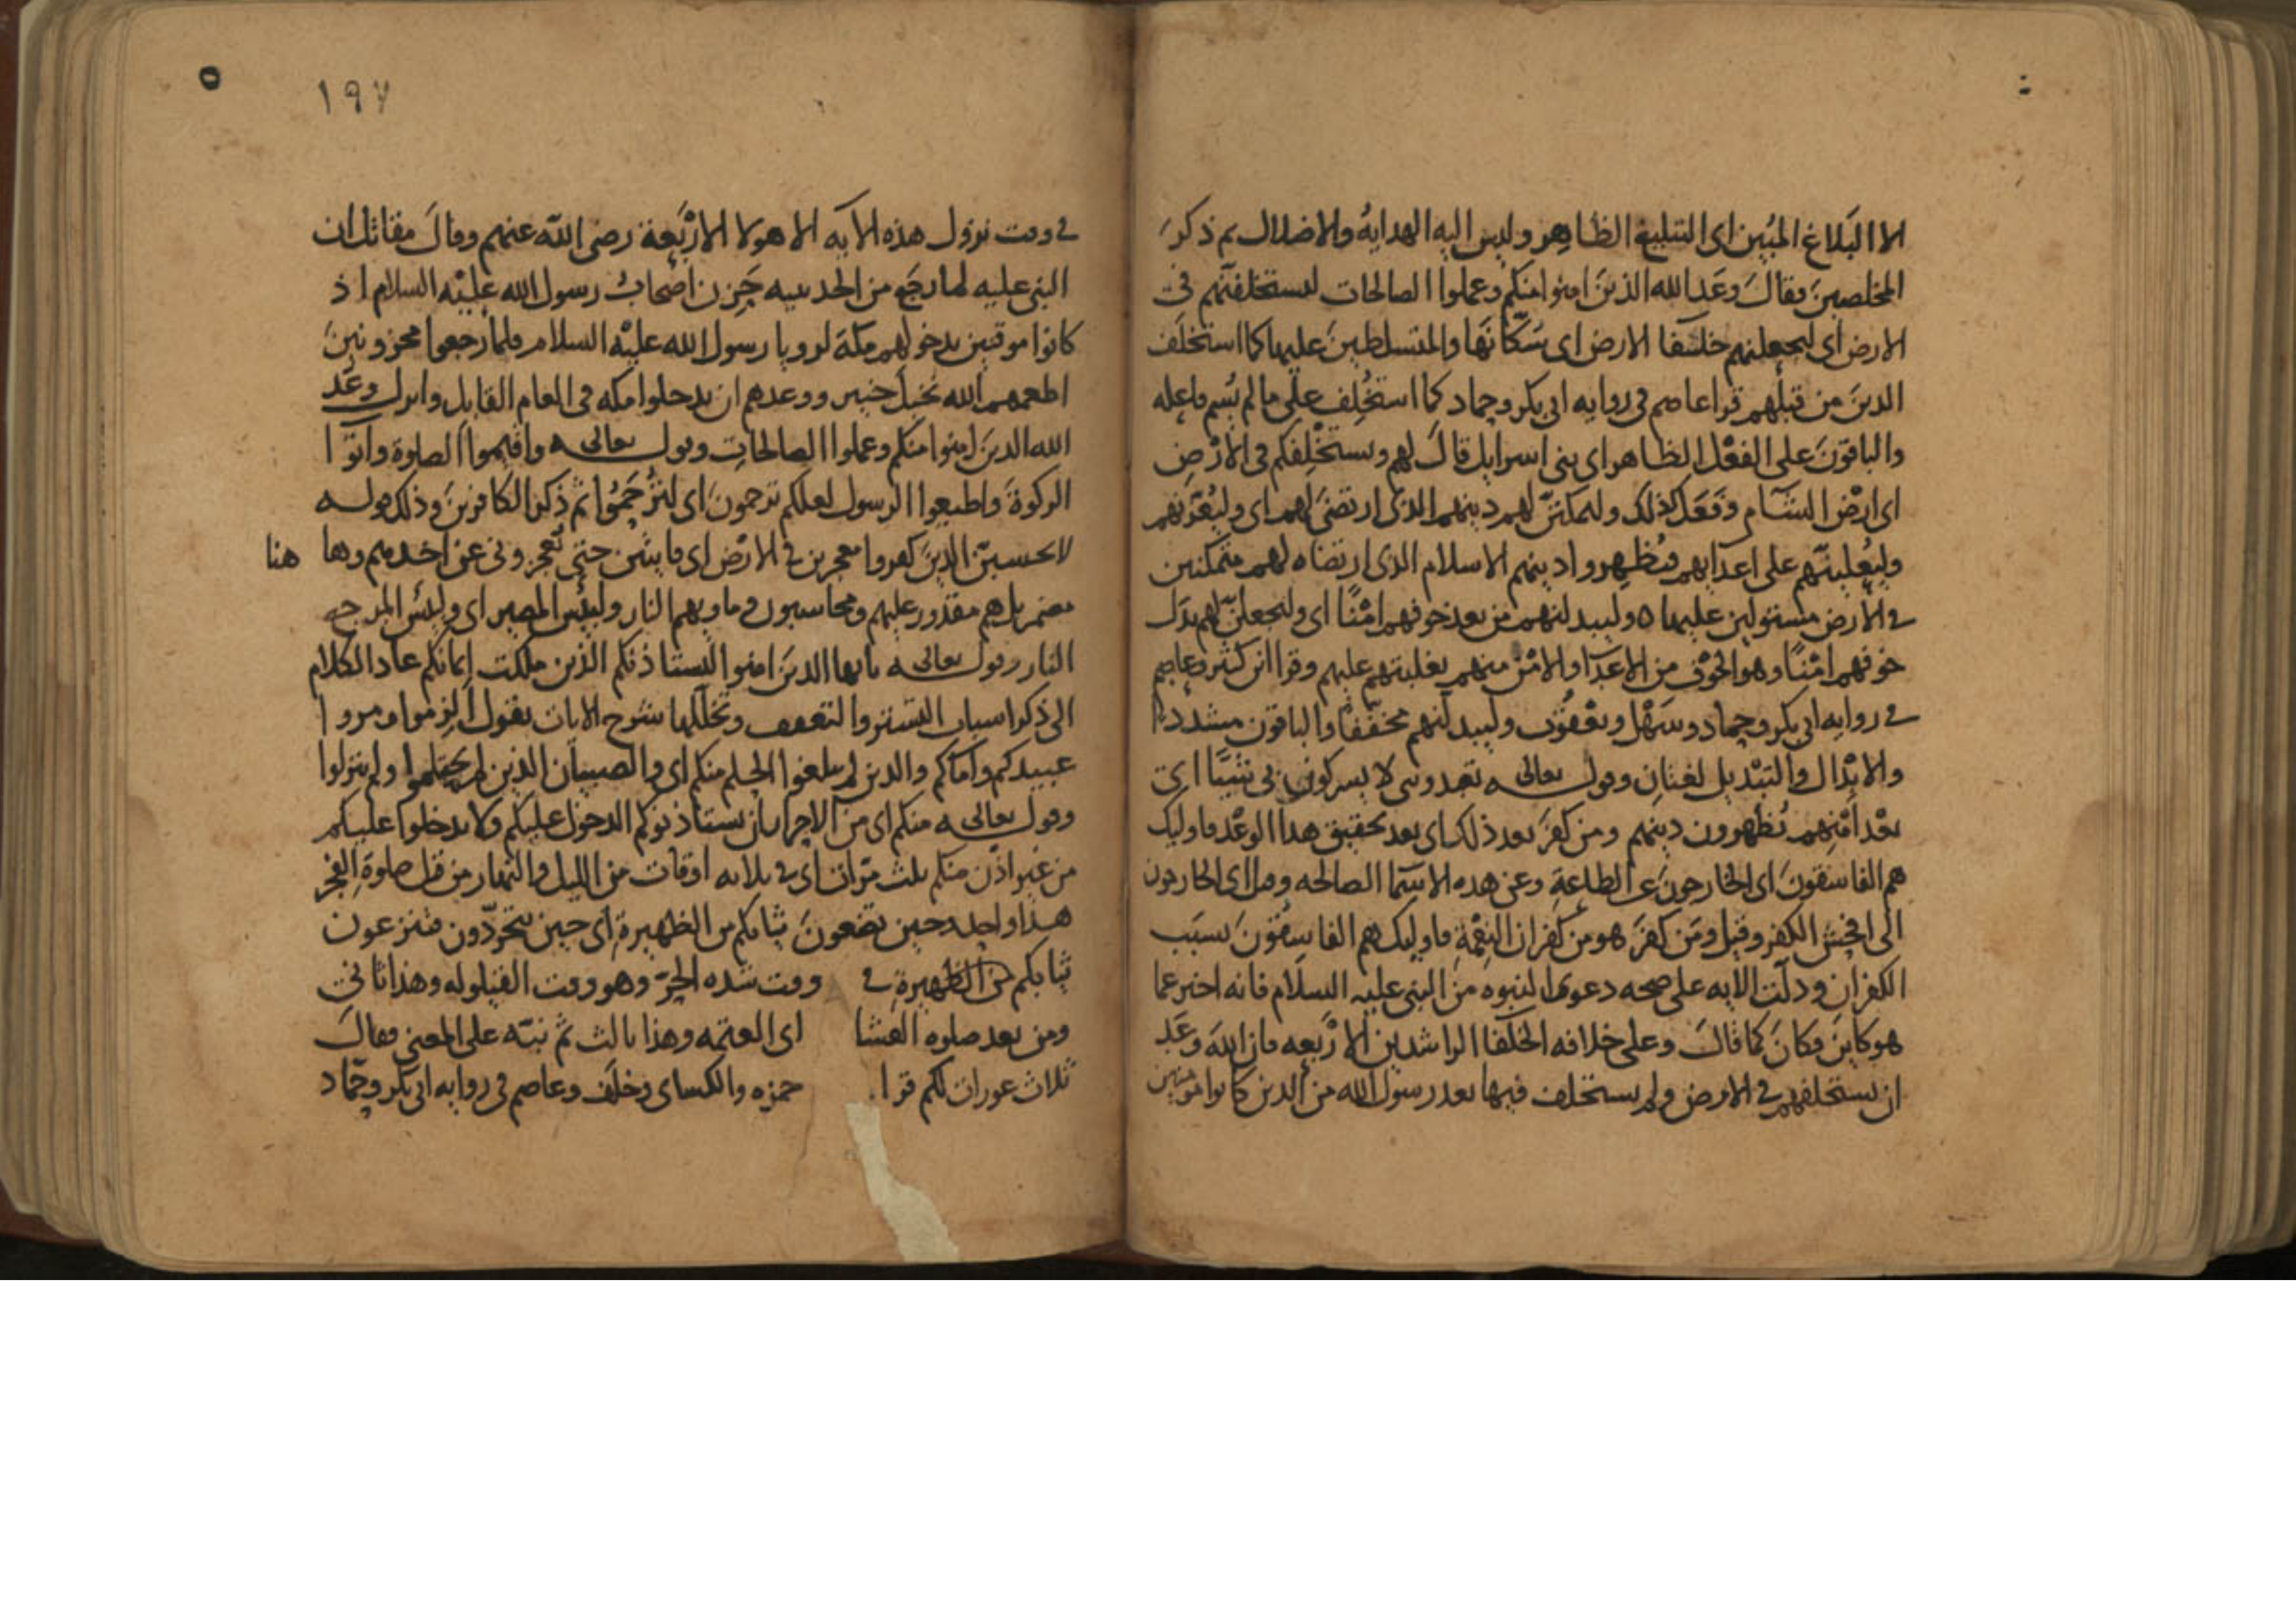 الا البلاغ المبين اى التبليغ الظاهر وليس اليه الهداية والاضلال ثم ذكر
المخلصين فقال وعد الله الذين امنوا منكم وعملوا الصالحات ليستخلفنهم فى
الارض اى ليجعلنهم خلفا الارض اى سكانها والمتسلطين عليها كما استخلف
الذين من قبلهم قرا عاصم فى روايه ابى بكر وحماد كما استخلف على ما لم يسم فاعله
والباقون على الفعل الظاهر اى بنى اسرايل قال لهم ويستخلفكم فى الارض
اى ارض الشام وفعل كذلك وليمكنن لهم دينهم الذى ارتضى لهم اى
وليعلينهم على اعدايهم فيظهروا دينهم الاسلام الذى ارتضاه لهم متمكنين
فى الارض مستولين عليها ه وليبدلنهم من بعد خوفهم امنا اى وليجعلن لهم بدل
خوفهم امنا وهو الخوف من الاعدا والامن منهم بغلبتهم عليهم وقرا ابن كثير وعاصم
فى روايه ابى بكر وحماد وسهل ويعقوب وليبدلنهم مخففا والباقون مشددا
والابدال والتبديل لغتان وقوله تعالى يعبدوننى لا يشركون بى شيئا اى
بعد امنهم يظهرون دينهم ومن كفر بعد ذلك اى بعد تحقيق هذا الوعد فاوليك
هم الفاسقون اى الخارجون عن الطاعة وعن هذه الاسما الصالحه وقيل اى الخارجون
الى افحش الكفر وقيل ومن كفر هو من كفران النعمة فاوليك هم الفاسقون بسبب
الكفران ودلت الايه على صحه دعوى النبوه من النبى عليه السلام فانه اخبر عما
هو كاين فكان كما قال وعلى خلافه الخلفا الراشدين الاربعه فان الله وعد
ان يستخلفهم فى الارض ولم يستخلف فيها بعد رسول الله من الذين كانوا مومنين
١٩٧
٥
فى وقت نزول هذه الايه الا هولا الاربعة رضى الله عنهم وقال مقاتل ان
النبى عليه لما رجع من الحديبيه حزن اصحاب رسول الله عليه السلام اذ
كانوا موقنين بدخولهم مكة لرويا رسول الله عليه السلام فلما رجعوا محزونين
اطعمهم الله نخيل خيبر ووعدهم ان يدخلوا مكه فى العام القابل وانزل وعد
الله الذين امنوا منكم وعملوا الصالحات وقوله تعالى واقيموا الصلوة واتوا
الزكوة واطيعوا الرسول لعلكم ترحمون اى لترحموا ثم ذكر الكافرين وذلك قوله
لا تحسبن الذين كفروا معجزين فى الارض اى فايتين حتى تعجزونى عن اخذهم وها هنا
مضمر بل هم مقدور عليهم ومحاسبون وماويهم النار ولبئس المصير اى ولبئس المرجع
النار وقوله تعالى يا ايها الذين امنوا ليستاذنكم الذين ملكت ايمانكم عاد الكلام
الى ذكر اسباب التستر والتعفف وتخللها شرح الايات يقول الزموا ومروا
عبيدكم واماكم والذين لم يبلغوا الحلم منكم اى والصبيان الذين لم يحتلموا ولم ينزلوا
وقوله تعالى منكم اى من الاحرار بان يستاذنوكم الدخول عليكم ولا يدخلوا عليكم
من غير اذن منكم ثلث مرات اى فى ثلاثه اوقات من الليل والنهار من قبل صلوة الفجر
هذا واحد وحين تضعون ثيابكم من الظهيرة اى حين تتجردون فتنزعون
ثيابكم من الظهيرة فى وقت شده الحر وهو وقت القيلوله وهذا ثانى
ومن بعد صلوه العشا اى العتمه وهذا ثالث ثم نبه على المعنى فقال
ثلاث عورات لكم قرا حمزه والكساى وخلف وعاصم فى روايه ابى بكر وحماد